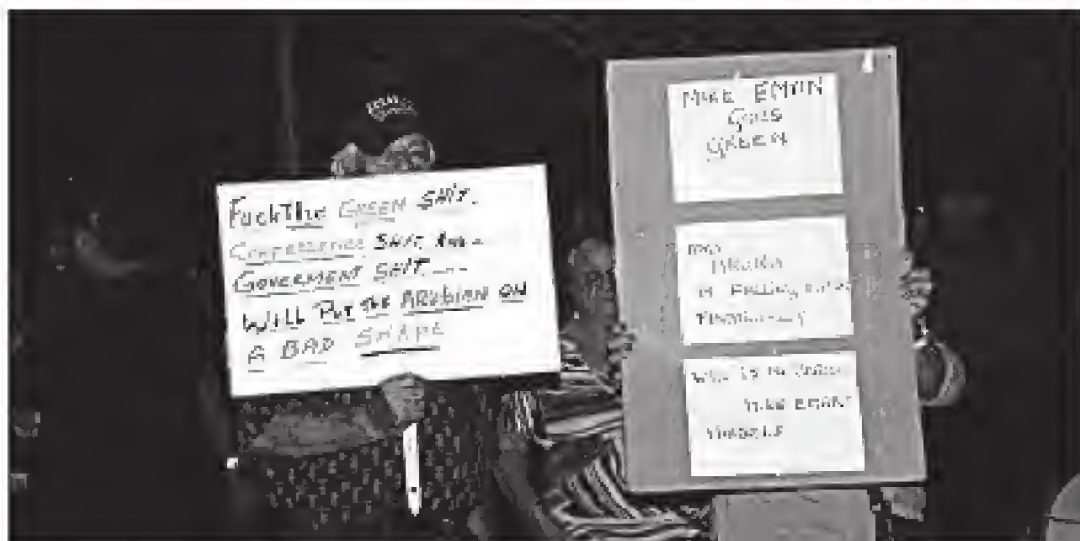 Fuck The GREEN SHIT.
CONFERENCE SHIT AND -
GOVERMENT SHIT ....
WILL PUT THE ARUBIAN ON
A BAD SHAPE
MIKE EMAN
GOES
GREEN
ARUBA
IS FALLING
FINANCIALLY
MIKE EMAN
HIMSELF